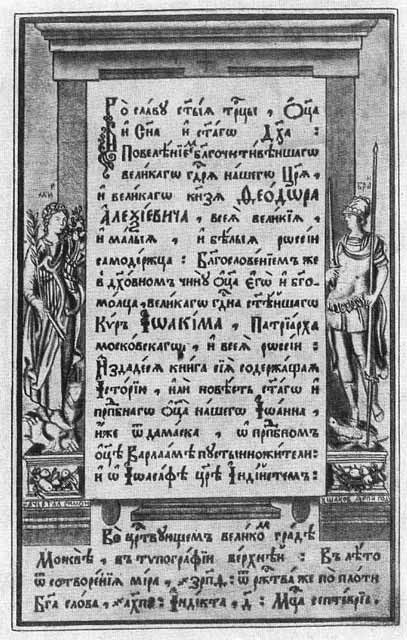 Во славу ст҃ы́ѧ трⷪ҇цы , Ѻ҆ц҃а̀
И҆ Сн҃а И҆ ст҃а́гѡ Дх҃а :
Повелѣ́нїемъ бл҃гочⷭ҇ти́вѣйшагѡ
вели́кагѡ гдⷭ҇рѧ на́шегѡ Цр҃ѧ̀ ,
и҆ вели́кагѡ кнѕ҃ѧ Ѳ҆ео́дѡра
А҆леѯі́евича , всеѧ̀ вели́кїѧ ,
и҆ ма́лыѧ , и҆ бѣ́лыѧ рѡссі́и
самоде́ржца : Бл҃гослове́нїемъ же
в̾ дх҃о́вномъ чи́нꙋ ѻ҆ц҃а̀ є҆гѡ̀ и҆ бг҃о-
мо́лца , вели́кагѡ гдⷭ҇и́на ст҃ѣ́йшагѡ
Кѷ́ръ І҆ѡаки́ма , Патрїа́рха
моско́вскагѡ , и҆ всеѧ̀ рѡссі́и :
И҆здаде́сѧ кни́га сїѧ̀ содержа́щаѧ
І҆сторі́ю , и҆лѝ по́вѣсть ст҃а́гѡ и҆
прпⷣбнагѡ ѻ҆ц҃а̀ на́шегѡ І҆ѡа́нна ,
и҆́же ѿ дама́ска , ѡ҆ прпⷣбномъ
ѻ҆ц҃ѣ̀ Варлаа́мѣ пꙋстынножи́тели :
и҆ ѡ҆ І҆ѡаса́фѣ цр҃ѣ̀ І҆ндї́йстѣмъ :
Во црⷭ҇твꙋющемъ вели́комъ гра́дѣ
Москвѣ̀ , въ тѷпогра́фїи ве́рхнѣй : Въ лѣ́то
ѿ сотворе́нїѧ мі́ра , ҂зрп҃ѳ : ѿ рⷤ҇тва́ же по пло́ти
Бг҃а сло́ва , ҂ахп҃ : І҆ндї́кта , д҃ : Мцⷭ҇а септе́врїа .